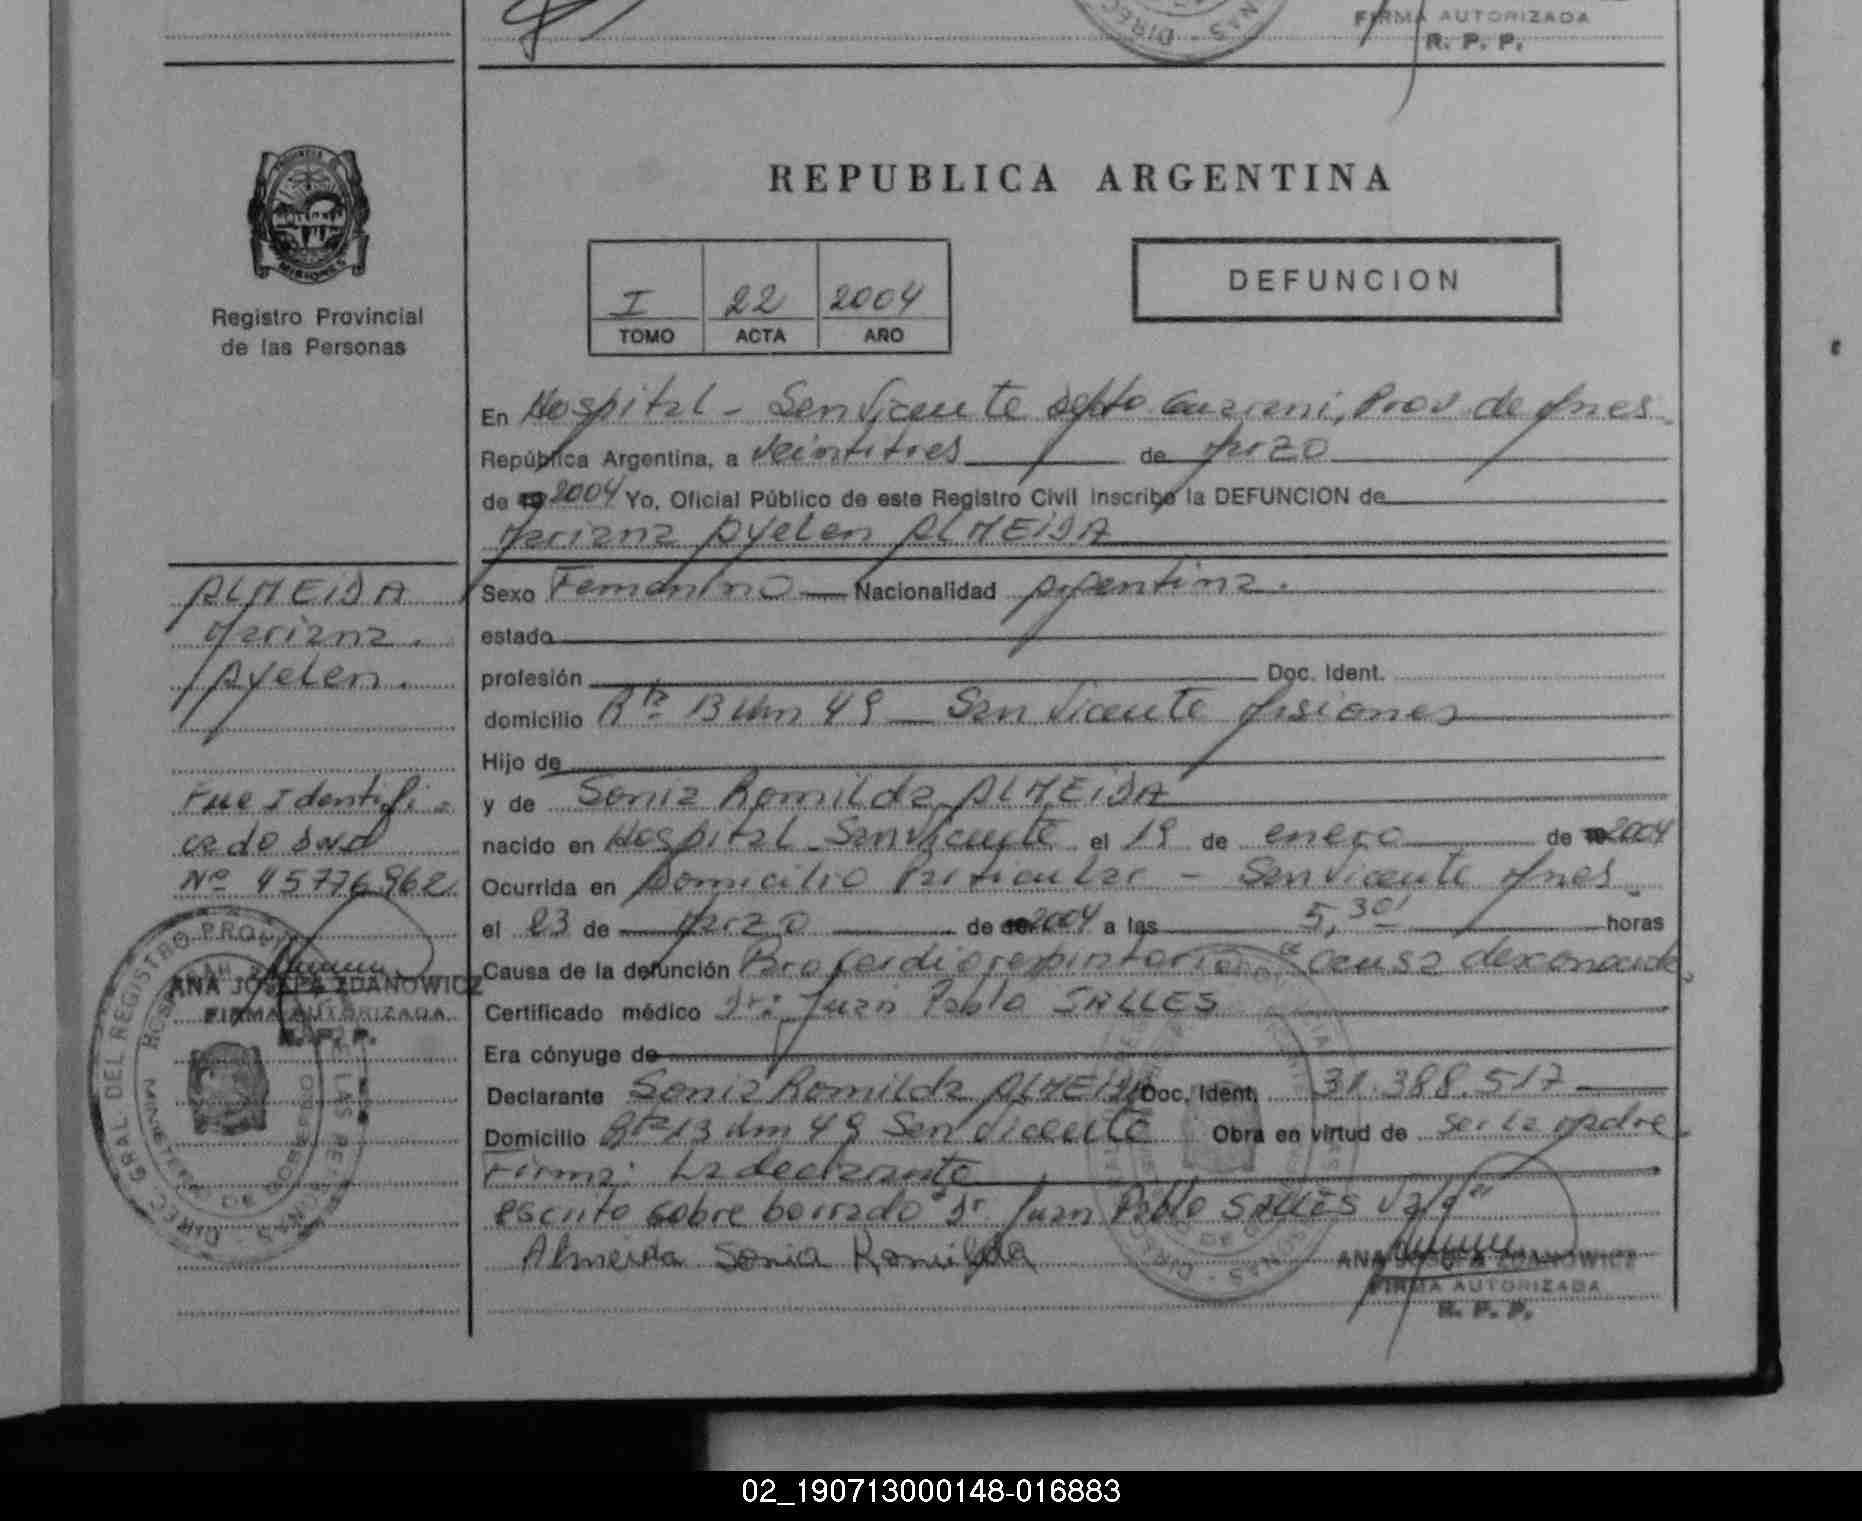 FIRMA AUTORIZADA
R. P. P.
PROVINCIA DE
MISIONES
Registro Provincial
de las Personas
REPUBLICA ARGENTINA
I 22 2004
TOMO ACTA AÑO
DEFUNCION
En Hospital - San Vicente Dpto Guarani, Prov. de Mnes.
República Argentina, a Veintitres de Marzo
de 19 2004 Yo, Oficial Público de este Registro Civil inscribo la DEFUNCION de
Mariana Ayelen ALMEIDA
ALMEIDA
Mariana.
Ayelen.
Fue Identifi-
cado DNI
Nº 45776962.
ANA JOSEFA ZDANOWICZ
FIRMA AUTORIZADA
R. P. P.
Sexo Femenino Nacionalidad Argentina.
estado
profesión Doc. Ident.
domicilio Rta 13 Km 49 San Vicente Misiones
Hijo de
y de Sonia Romilda ALMEIDA
nacido en Hospital San Vicente el 19 de enero de 19 2004
Ocurrida en Domicilio Particular - San Vicente Mnes.
el 23 de Marzo de 19 2004 a las 5,30' horas
Causa de la defunción Pro cardiorespiratorio causa desconocida,
Certificado médico Dr: Juan Pablo SALLES
Era cónyuge de
Declarante Sonia Romilda ALMEIDA Doc. Ident. 31.388.517
Domicilio Rta 13 Km 49 San Vicente Obra en virtud de ser la Madre.
Firma: La declarante
escrito sobre borrado "Dr Juan Pablo SALLES Vale"
Almeida Sonia Romilda
ANA JOSEFA ZDANOWICZ
FIRMA AUTORIZADA
R. P. P.
02_190713000148-016883